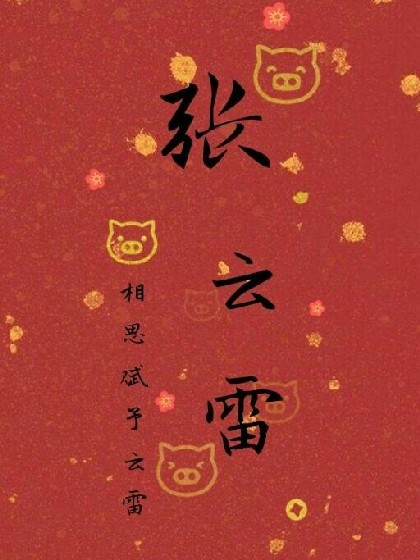 张云雷
相思赋予云雷